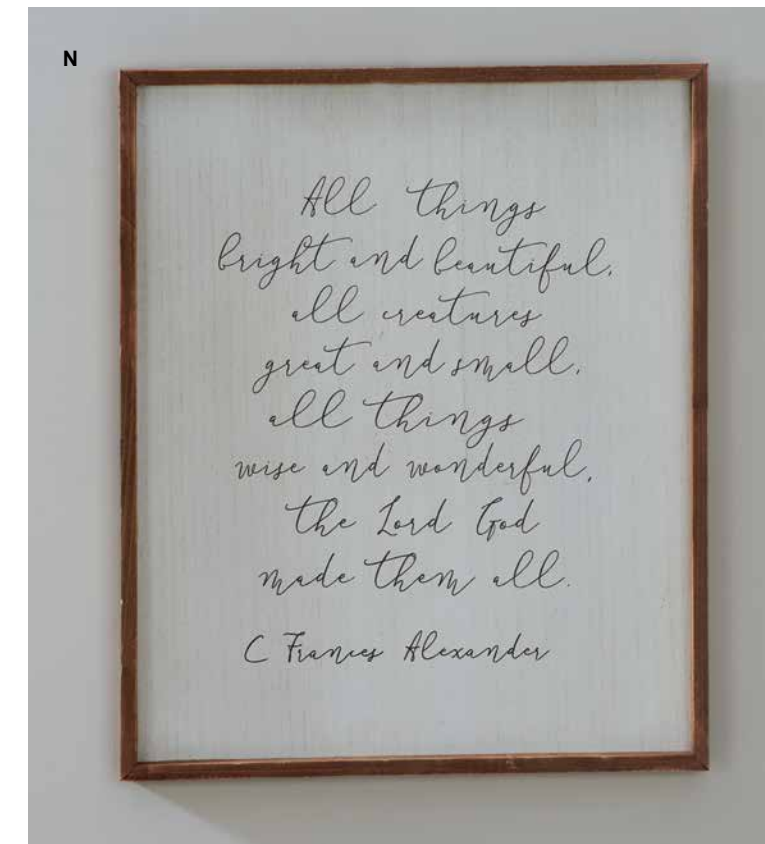 N
All things
bright and beautiful,
all creatures
great and small,
all things
wise and wonderful,
the Lord God
made them all.
C Frances Alexander